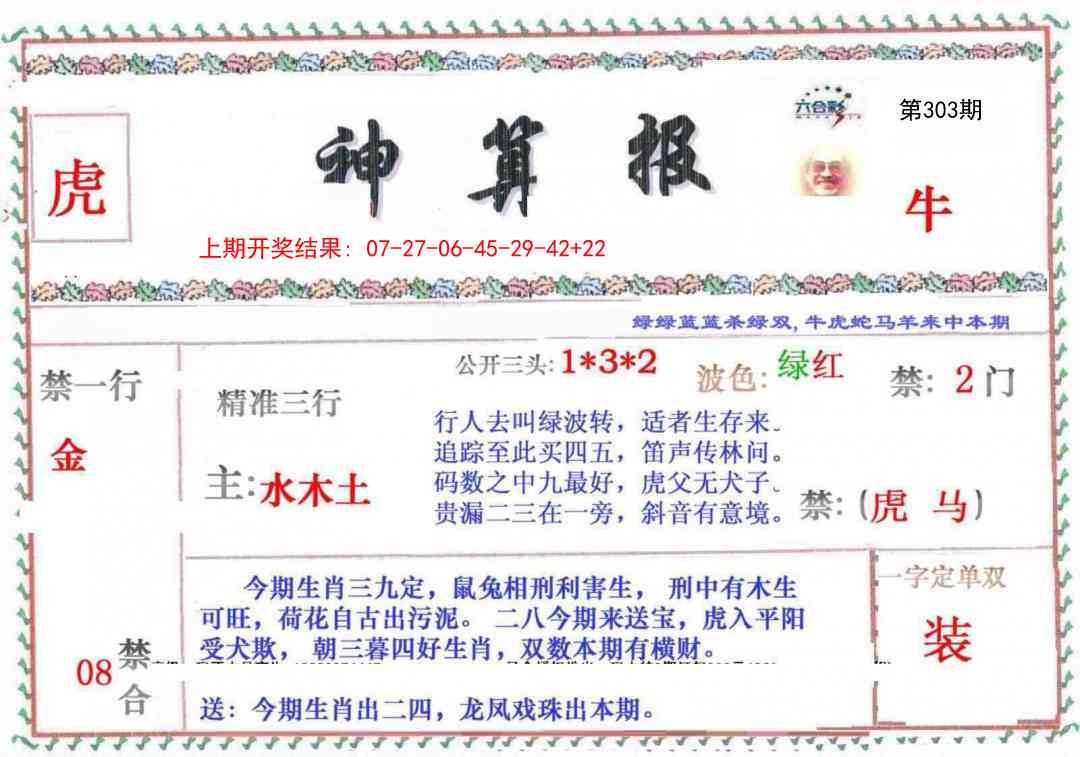 六合彩
第303期
虎
神算报
牛
上期开奖结果：07-27-06-45-29-42+22
绿绿蓝蓝杀绿双,牛虎蛇马羊来中本期
禁一行
金
精准三行
主:水木土
公开三头:1*3*2
波色:绿红
禁：2门
行人去叫绿波转，适者生存来。
追踪至此买四五，笛声传林问。
码数之中九最好，虎父无犬子。
贵漏二三在一旁，斜音有意境。
禁:(虎 马)
今期生肖三九定，鼠兔相刑利害生， 刑中有木生
可旺，荷花自古出污泥。 二八今期来送宝，虎入平阳
受犬欺， 朝三暮四好生肖，双数本期有横财。
送：今期生肖出二四，龙凤戏珠出本期。
08
禁合
一字定单双
装